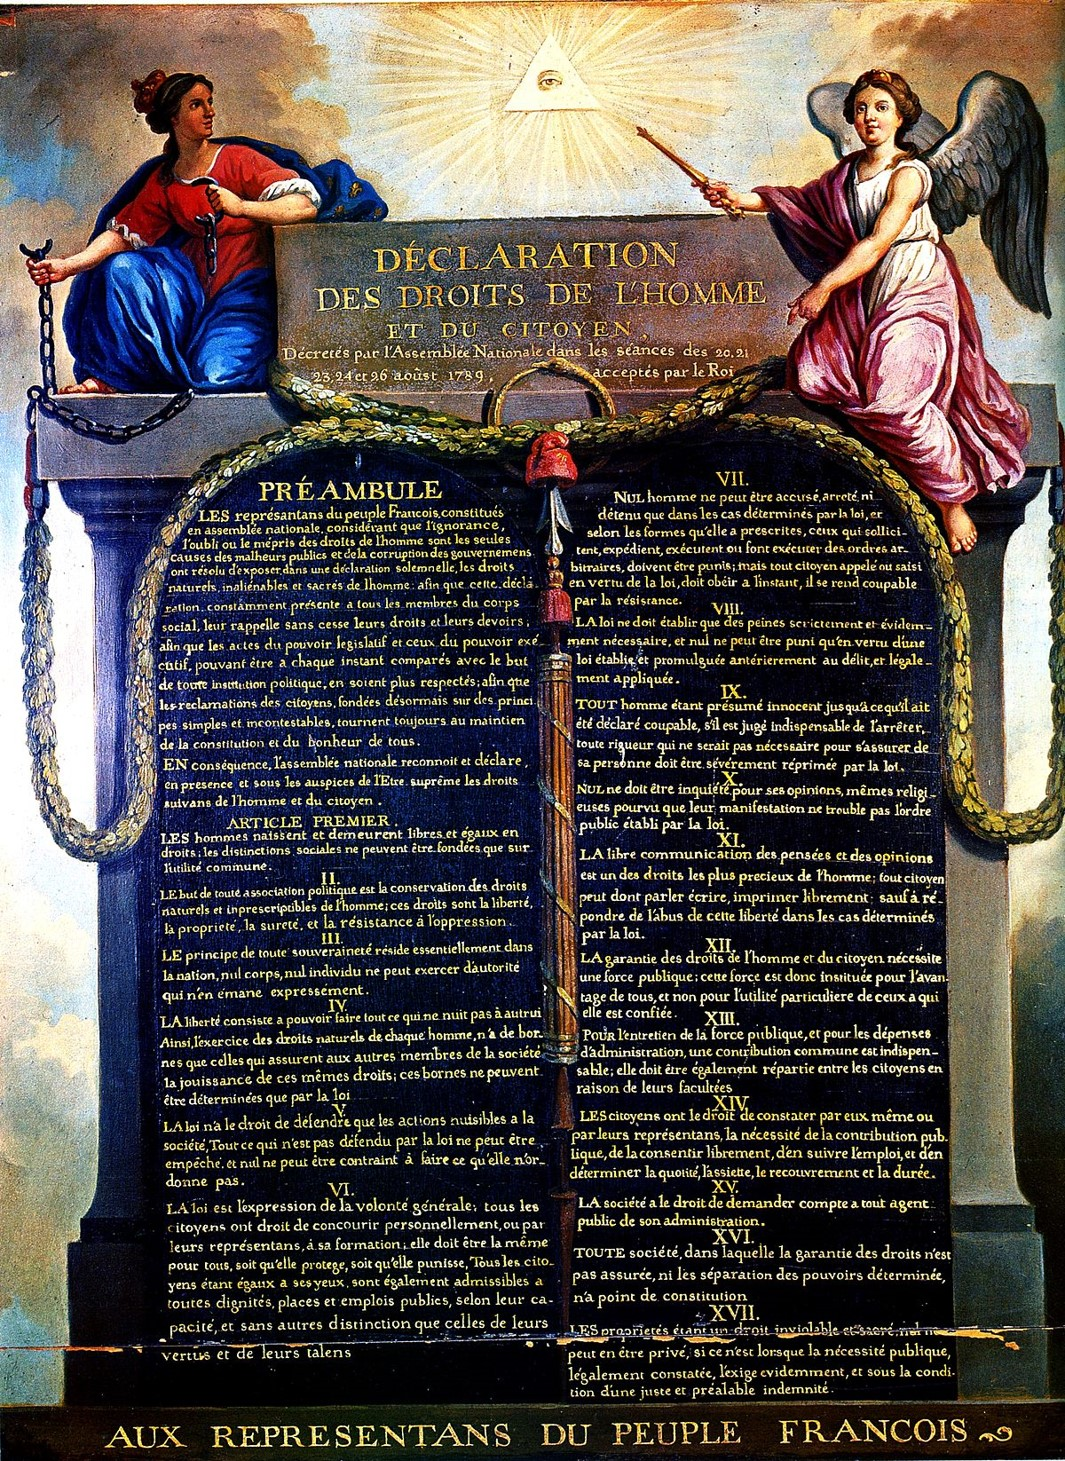 DÉCLARATION
DES DROITS DE L'HOMME
ET DU CITOYEN,
Décretés par l'Assemblée Nationale dans les séances des 20.21
23.24 et 26 aoûst 1789, acceptés par le Roi
PRÉAMBULE
LES représantans du peuple Francois, constitués
en assemblée nationale, considérant que l'ignorance,
l'oubli ou le mépris des droits de l'homme sont les seules
causes des malheurs publics et de la corruption des gouvernemens
ont résolu d'exposer dans une déclaration solemnelle, les droits
naturels, inaliénables et sacrés de l'homme; afin que cette décla-
ration, constamment présente a tous les membres du corps
social, leur rappelle sans cesse leurs droits et leurs devoirs;
afin que les actes du pouvoir legislatif et ceux du pouvoir exé-
cutif, pouvant être a chaque instant comparés avec le but
de toute institution politique, en soient plus respectés; afin que
les reclamations des citoyens, fondées désormais sur des princi
pes simples et incontestables, tournent toujours au maintien
de la constitution et du bonheur de tous.
EN conséquence, l'assemblée nationale reconnoit et déclare,
en presence et sous les auspices de l'Etre suprême les droits
suivans de l'homme et du citoyen.
ARTICLE PREMIER.
LES hommes naissent et demeurent libres et égaux en
droits; les distinctions sociales ne peuvent être fondées que sur
l'utilité commune.
II.
LE but de toute association politique est la conservation des droits
naturels et inprescriptibles de l'homme; ces droits sont la liberté,
la propriété, la sureté, et la résistance à l'oppression.
III.
LE principe de toute souveraineté réside essentiellement dans
la nation, nul corps, nul individu ne peut exercer d'autorité
qui n'en émane expressement.
IV.
LA liberté consiste a pouvoir faire tout ce qui ne nuit pas à autrui
Ainsi, l'exercice des droits naturels de chaque homme, n'a de bor-
nes que celles qui assurent aux autres membres de la société
la jouissance de ces mêmes droits; ces bornes ne peuvent
être déterminées que par la loi
V.
LA loi n'a le droit de défendre que les actions nuisibles a la
société, Tout ce qui n'est pas défendu par la loi ne peut être
empêché, et nul ne peut être contraint à faire ce qu'elle n'or-
donne pas.
VI.
LA loi est l'expression de la volonté générale; tous les
citoyens ont droit de concourir personnellement, ou par
leurs représentans, à sa formation; elle doit être la même
pour tous, soit qu'elle protege, soit qu'elle punisse, Tous les cito-
yens étant égaux a ses yeux, sont également admissibles a
toutes dignités, places et emplois publics, selon leur ca-
pacité, et sans autres distinction que celles de leurs
vertus et de leurs talens
VII.
NUL homme ne peut être accusé, arreté, ni
détenu que dans les cas déterminés par la loi, et
selon les formes qu'elle a prescrites, ceux qui sollici-
tent, expédient, exécutent ou font exécuter des ordres ar-
bitraires, doivent être punis; mais tout citoyen appelé ou saisi
en vertu de la loi, doit obéir a l'instant, il se rend coupable
par la résistance.
VIII.
LA loi ne doit établir que des peines strictement et évidem-
ment nécessaire, et nul ne peut être puni qu'en vertu d'une
loi établie et promulguée antérierement au délit, et légale-
ment appliquée.
IX.
TOUT homme étant présumé innocent jusqu'a ce qu'il ait
été déclaré coupable, s'il est jugé indispensable de l'arrêter,
toute rigueur qui ne serait pas nécessaire pour s'assurer de
sa personne doit être sévérement réprimée par la loi.
X.
NUL ne doit être inquiété pour ses opinions, mêmes religi-
euses pourvu que leur manifestation ne trouble pas l'ordre
public établi par la loi.
XI.
LA libre communication des pensées et des opinions
est un des droits les plus precieux de l'homme; tout citoyen
peut dont parler écrire, imprimer librement; sauf à ré-
pondre de l'abus de cette liberté dans les cas déterminés
par la loi.
XII.
LA garantie des droits de l'homme et du citoyen nécessite
une force publique; cette force est donc instituée pour l'avan-
tage de tous, et non pour l'utilité particuliere de ceux a qui
elle est confiée.
XIII.
POUR l'entretien de la force publique, et pour les dépenses
d'administration, une contribution commune est indispen-
sable; elle doit être également répartie entre les citoyens en
raison de leurs facultées
XIV.
LES citoyens ont le droit de constater par eux même ou
par leurs représentans, la nécessité de la contribution pub-
lique, de la consentir librement, d'en suivre l'emploi, et d'en
déterminer la quotité, l'assiette, le recouvrement et la durée.
XV.
LA société a le droit de demander compte a tout agent
public de son administration.
XVI.
TOUTE société, dans laquelle la garantie des droits n'est
pas assurée, ni les séparation des pouvoirs déterminée,
n'a point de constitution
XVII.
LES proprietés étant un droit inviolable et sacré, nul ne
peut en être privé, si ce n'est lorsque la nécessité publique,
légalement constatée, l'exige evidemment, et sous la condi-
tion d'une juste et préalable indemnité.
AUX REPRESENTANS DU PEUPLE FRANCOIS